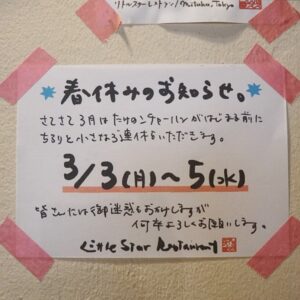 リトルスターレストラン/Mitaka,Tokyo
春休みのお知らせ。
さてさて3月はたけのこチャーハンがはじまる前に
ちろりと小さな3連休をいただきます。
3/3(月)〜5(水)
皆さんには御迷惑をおかけしますが
何卒よろしくお願いします。
Little Star Restaurant